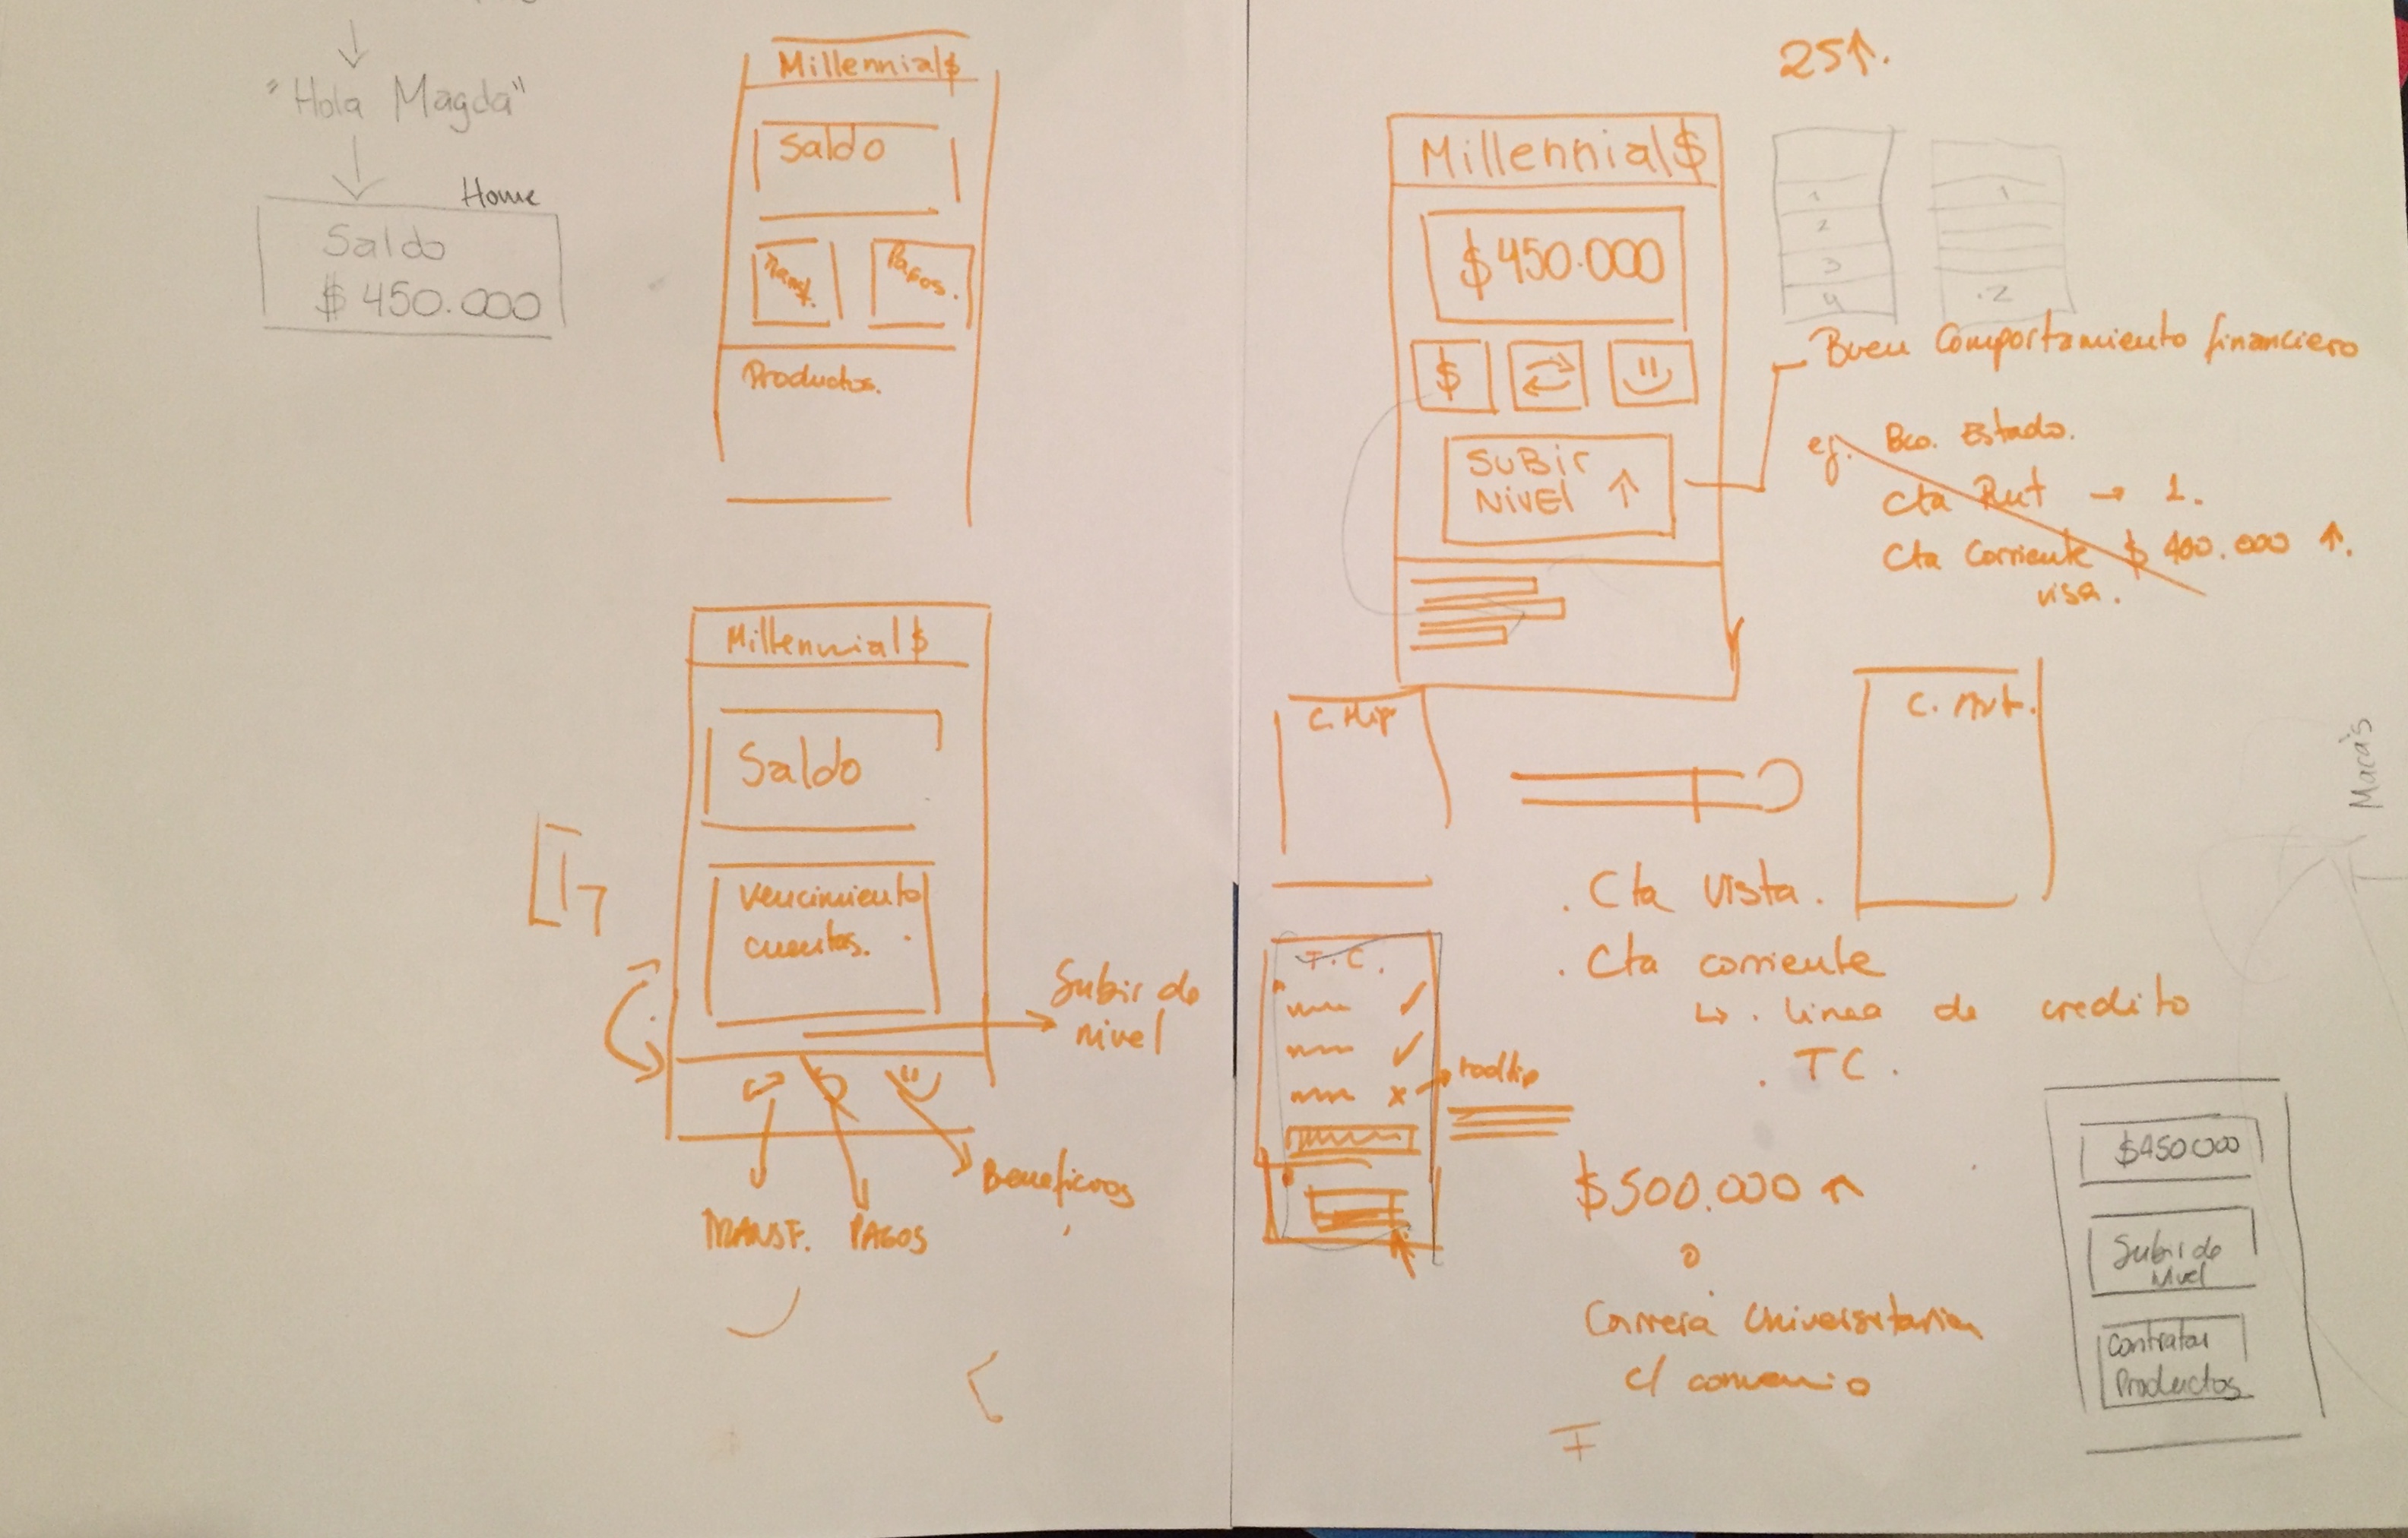 "Hola Magda"
Home
Saldo
$ 450.000
Millennial$
Saldo
Transf.
Pagos.
Productos.
Millennial$
Saldo
Vencimiento
cuentas.
Subir de
nivel
TRANSF.
PAGOS
Beneficios
25↑.
Millennial$
$450.000
$
SUBir
NIVEl ↑
1
2
3
4
1
.2
Buen Comportamiento financiero
ej. Bco. Estado.
Cta Rut → 1.
Cta Corriente $ 400.000 ↑.
visa.
C. Hip
C. Aut.
Macas
. Cta Vista.
. Cta corriente
↳ . linea de credito
. TC.
T.C.
✓
✓
x → tooltip
$500.000 ↑
o
Carrera Universitaria
c/ convenio
$450000
Subir de
Nivel
Contratar
Productos